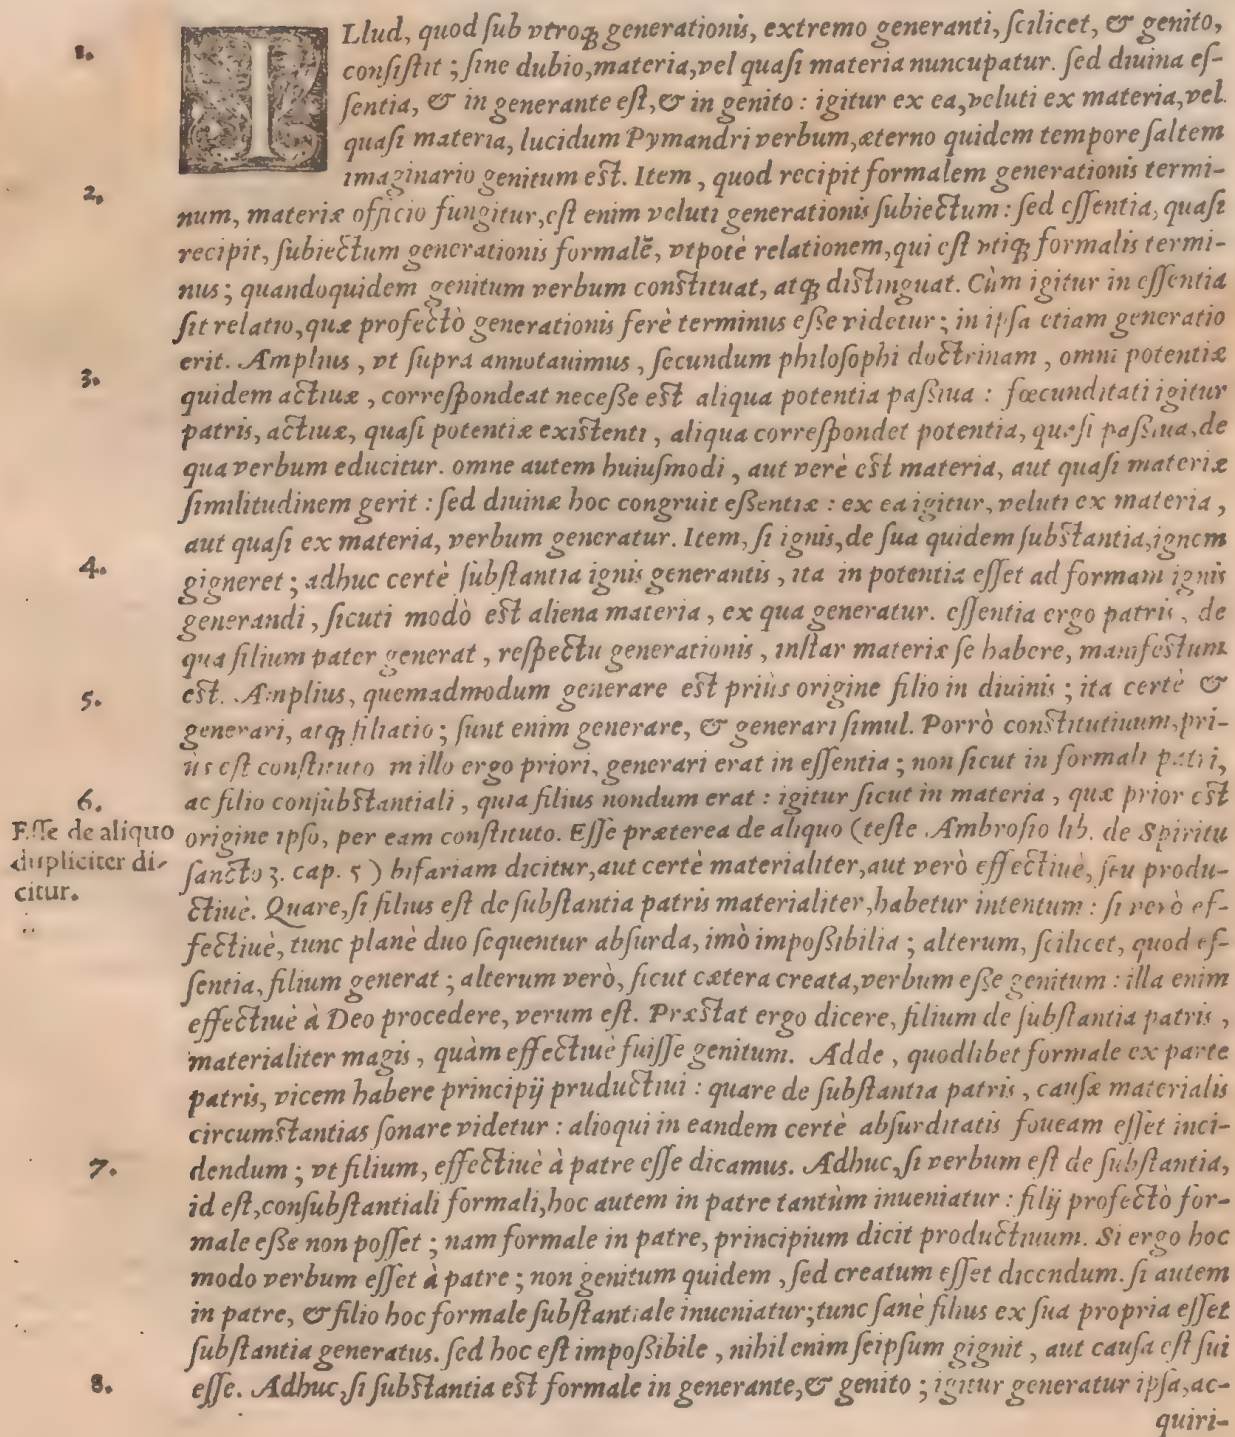 1.
ILlud, quod ſub vtroq; generationis, extremo generanti, ſcilicet, & genito,
conſiſtit ; ſine dubio, materia, vel quaſi materia nuncupatur. ſed diuina eſ-
ſentia, & in generante eſt, & in genito : igitur ex ea, veluti ex materia, vel
quaſi materia, lucidum Pymandri verbum, æterno quidem tempore ſaltem
2.
imaginario genitum eſt. Item, quod recipit formalem generationis termi-
num, materiæ officio fungitur, eſt enim veluti generationis ſubiectum : ſed eſſentia, quaſi
recipit, ſubiectum generationis formalẽ, vtpotè relationem, qui eſt vtiq; formalis termi-
nus ; quandoquidem genitum verbum conſtituat, atq; diſtinguat. Cùm igitur in eſſentia
ſit relatio, quæ profectò generationis ferè terminus eſſe videtur ; in ipſa etiam generatio
3.
erit. Amplius, vt ſupra annotauimus, ſecundum philoſophi doctrinam, omni potentiæ
quidem actiuæ, correſpondeat neceſſe eſt aliqua potentia paſſiua : fœcunditati igitur
patris, actiuæ, quaſi potentiæ exiſtenti, aliqua correſpondet potentia, quaſi paſſiua, de
qua verbum educitur. omne autem huiuſmodi, aut verè eſt materia, aut quaſi materiæ
ſimilitudinem gerit : ſed diuinæ hoc congruit eſſentiæ : ex ea igitur, veluti ex materia,
4.
aut quaſi ex materia, verbum generatur. Item, ſi ignis, de ſua quidem ſubſtantia, ignem
gigneret ; adhuc certè ſubſtantia ignis generantis, ita in potentia eſſet ad formam ignis
generandi, ſicuti modò eſt aliena materia, ex qua generatur. eſſentia ergo patris, de
qua filium pater generat, reſpectu generationis, inſtar materiæ ſe habere, manifeſtum
5.
eſt. Amplius, quemadmodum generare eſt priùs origine filio in diuinis ; ita certè &
generari, atq; filiatio ; ſunt enim generare, & generari ſimul. Porrò conſtitutiuum, pri-
ùs eſt conſtituto in illo ergo priori, generari erat in eſſentia ; non ſicut in formali patri,
ac filio conſubſtantiali, quia filius nondum erat : igitur ſicut in materia, quæ prior eſt
6.
Eſſe de aliquo
dupliciter di-
citur.
origine ipſo, per eam conſtituto. Eſſe præterea de aliquo (teſte Ambroſio lib. de Spiritu
ſancto 3. cap. 5 ) bifariam dicitur, aut certè materialiter, aut verò effectiuè, ſeu produ-
ctiuè. Quare, ſi filius eſt de ſubſtantia patris materialiter, habetur intentum : ſi verò ef-
fectiuè, tunc planè duo ſequentur abſurda, imò impoſſibilia ; alterum, ſcilicet, quod eſ-
ſentia, filium generat ; alterum verò, ſicut cætera creata, verbum eſſe genitum : illa enim
effectiuè à Deo procedere, verum eſt. Præſtat ergo dicere, filium de ſubſtantia patris,
materialiter magis, quàm effectiuè fuiſſe genitum. Adde, quodlibet formale ex parte
patris, vicem habere principij pruductiui : quare de ſubſtantia patris, cauſæ materialis
circumſtantias ſonare videtur : alioqui in eandem certè abſurditatis foueam eſſet inci-
7.
dendum ; vt filium, effectiuè à patre eſſe dicamus. Adhuc, ſi verbum eſt de ſubſtantia,
id eſt, conſubſtantiali formali, hoc autem in patre tantùm inueniatur : filij profectò for-
male eſſe non poſſet ; nam formale in patre, principium dicit productiuum. Si ergo hoc
modo verbum eſſet à patre ; non genitum quidem, ſed creatum eſſet dicendum. ſi autem
in patre, & filio hoc formale ſubſtantiale inueniatur ; tunc ſanè filius ex ſua propria eſſet
ſubſtantia generatus. ſed hoc eſt impoſſibile, nihil enim ſeipſum gignit, aut cauſa eſt ſui
8.
eſſe. Adhuc, ſi ſubſtantia eſt formale in generante, & genito ; igitur generatur ipſa, ac-
quiri-